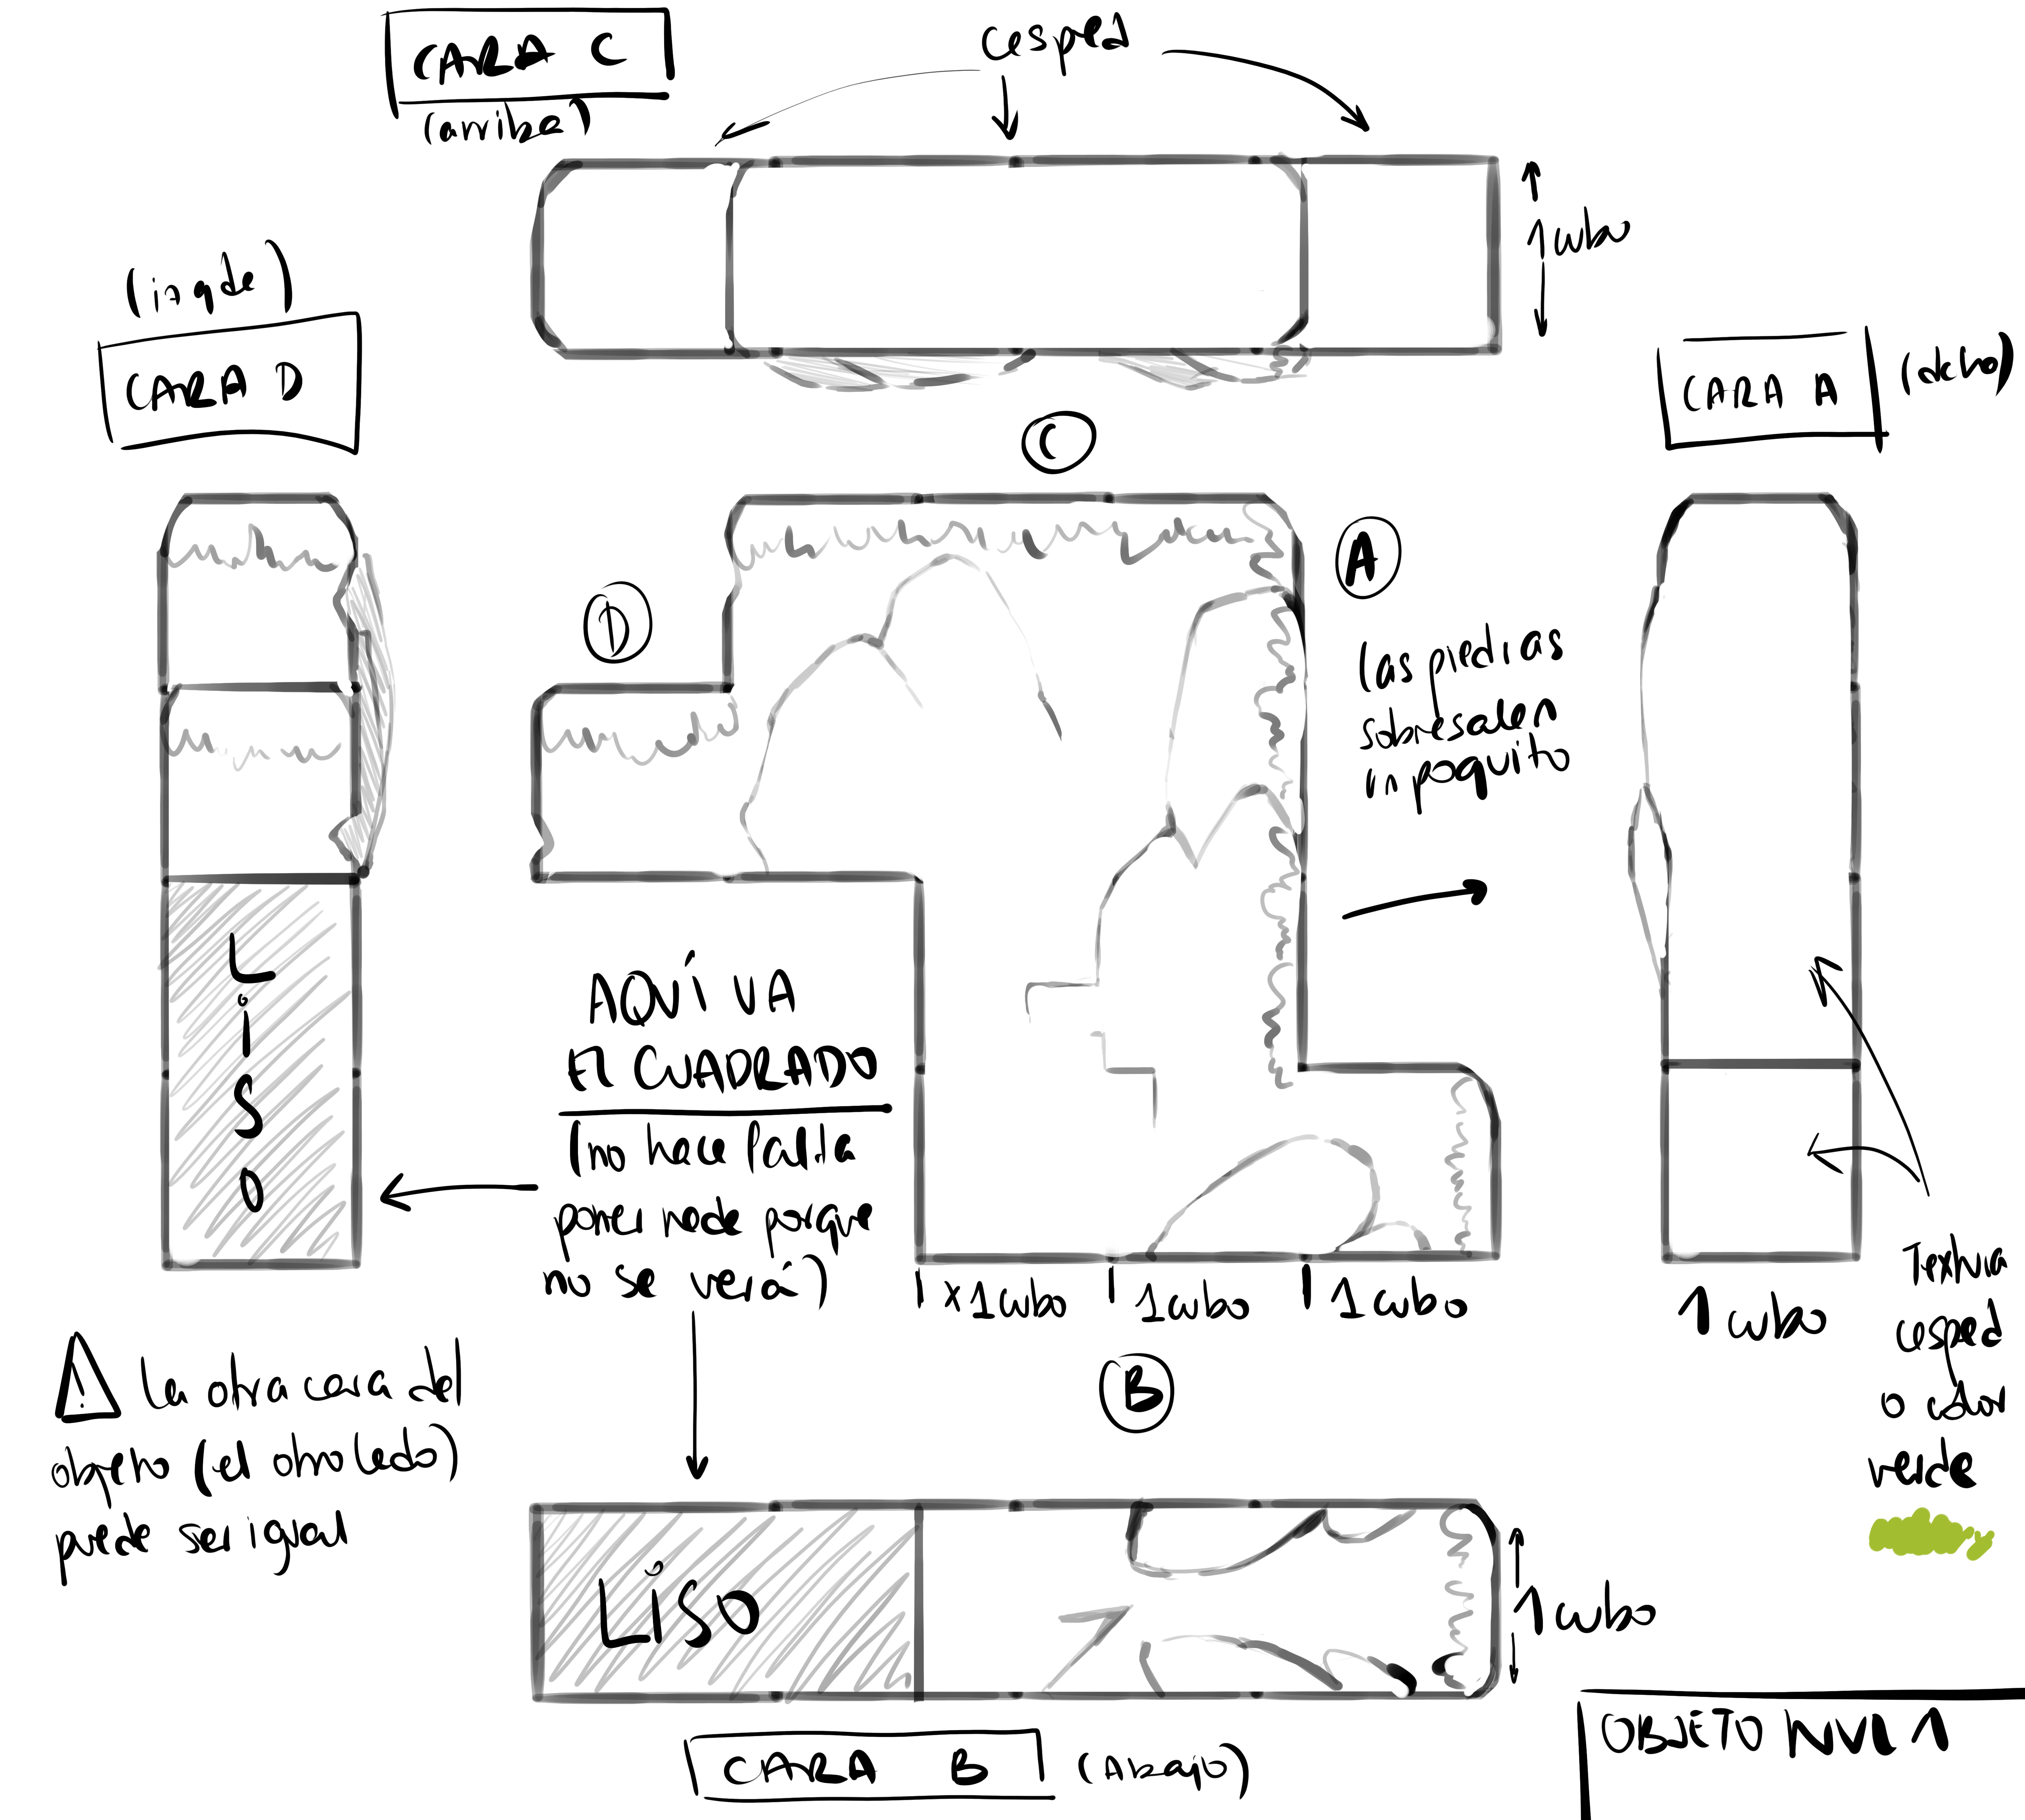 CARA C
(arriba)
cesped
1 cubo
(izqda)
CARA D
CARA A
(dcho)
C
A
D
Las piedras
sobresalen
un poquito
LISO
AQUÍ VA
El CUADRADO
(no hace falta
poner nada porque
no se verá)
x 1 cubo
1 cubo
1 cubo
1 cubo
Textura
cesped
o color
verde
B
! La otra cara del
objeto (el otro lado)
puede ser igual
LISO
1 cubo
CARA B
(Abajo)
OBJETO NVL 1